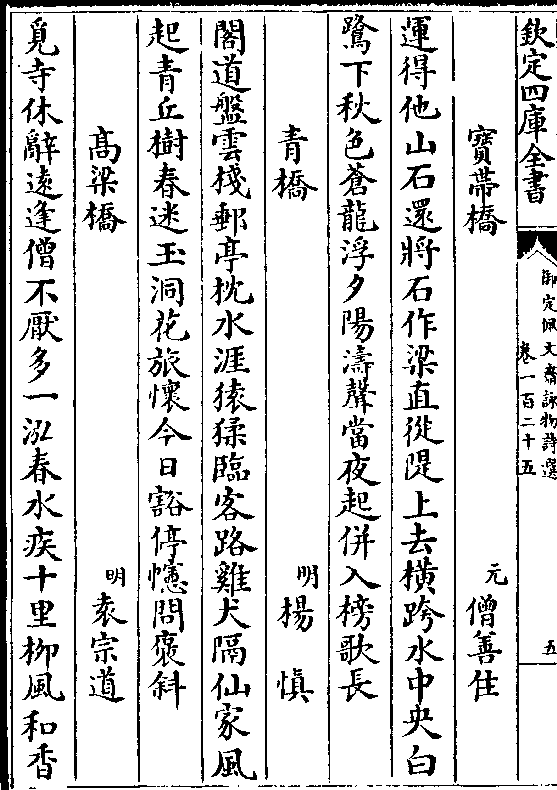 欽定四庫全書
御定佩文齋詠物詩選
卷一百二十五
五
寶帶橋
元僧善住
運得他山石還將石作梁直從隄上去橫跨水中央白
鷺下秋色蒼龍浮夕陽濤聲當夜起併入榜歌長
青橋
明楊慎
閣道盤雲棧郵亭枕水涯猿猱臨客路雞犬隔仙家風
起青丘樹春迷玉洞花旅懷今日豁停幰問褒斜
高梁橋
明袁宗道
覓寺休辭逺逢僧不厭多一泓春水疾十里栁風和香